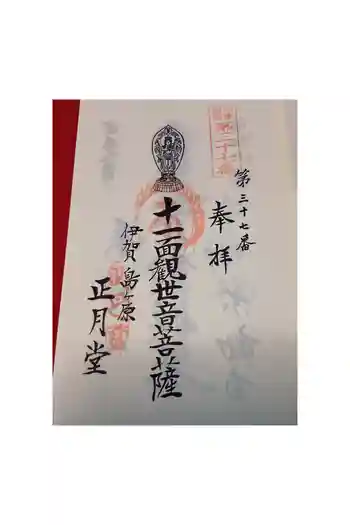 第三十七番
奉拝
十一面觀世音菩薩
伊賀島ヶ原
正月堂